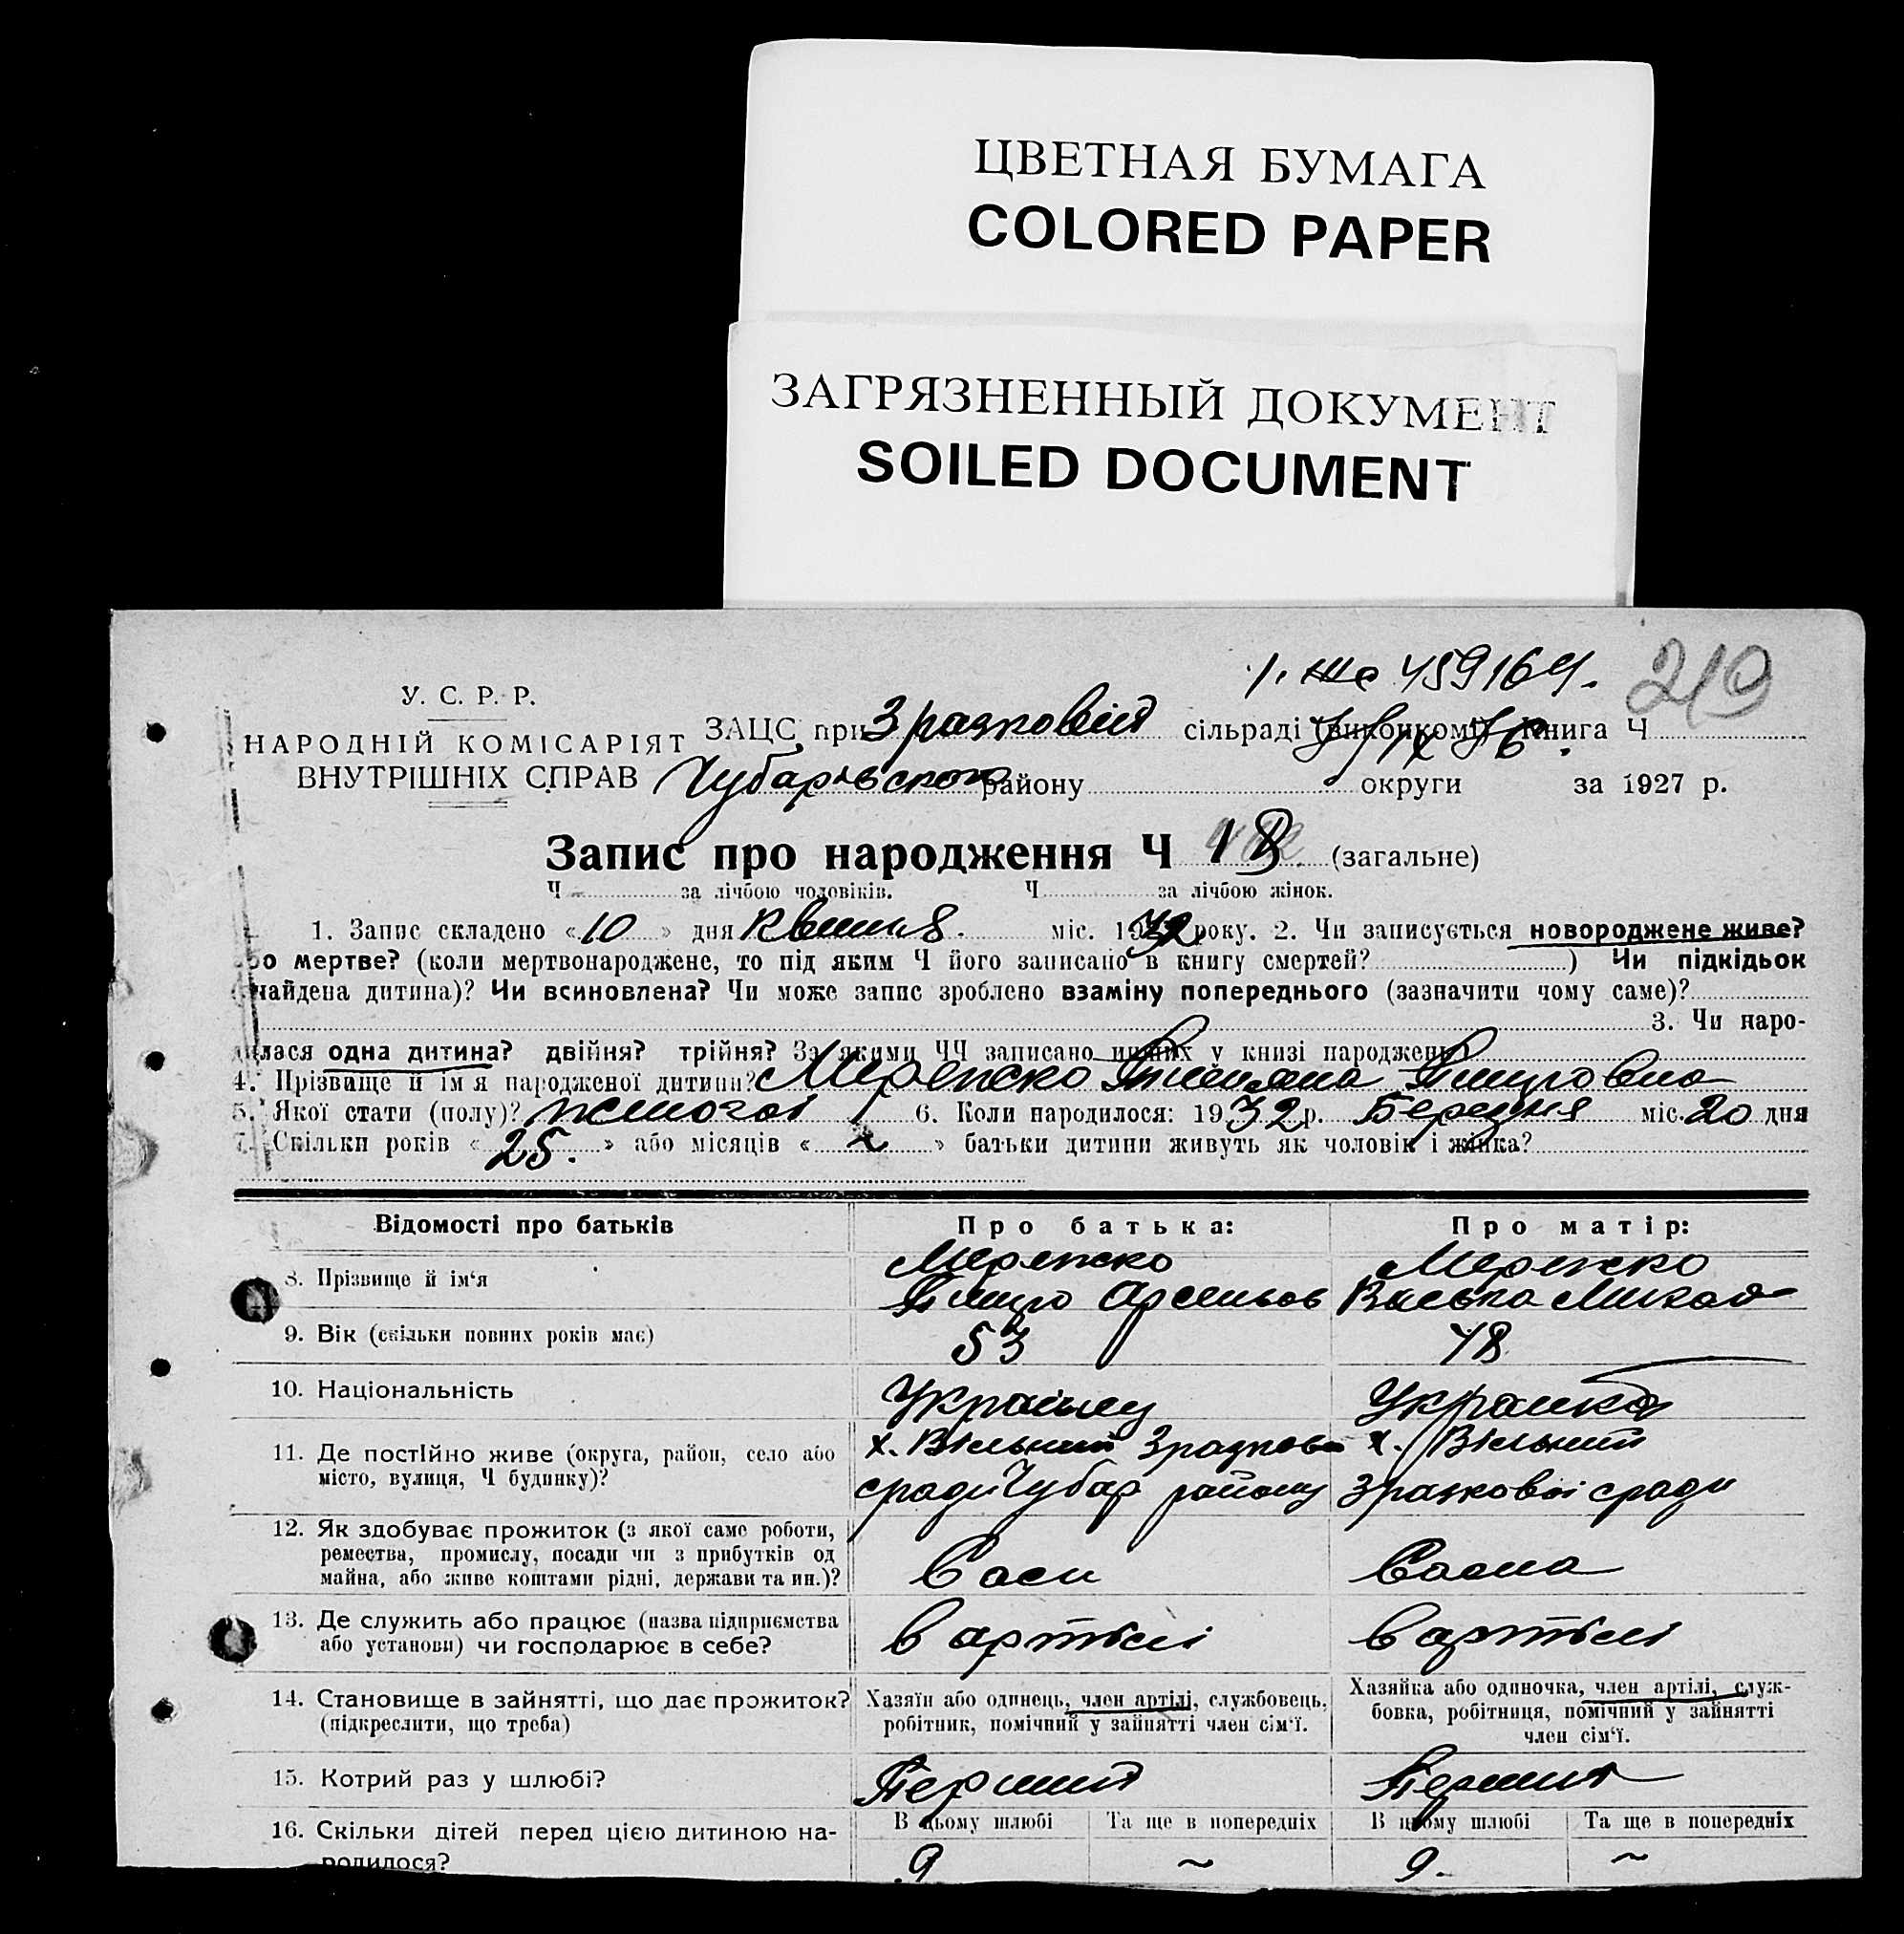 ЦВЕТНАЯ БУМАГА
COLORED PAPER
ЗАГРЯЗНЕННЫЙ ДОКУМЕНТ
SOILED DOCUMENT
219
459164.
У. С. Р. Р.
НАРОДНІЙ КОМІСАРІЯТ
ВНУТРІШНІХ СПРАВ
ЗАЦС при Зразковій сільраді (виконкомі) Книга Ч
Чубарівском району округи за 1927 р.
Запис про народження Ч 18 (загальне)
Ч за лічбою чоловіків. Ч за лічбою жінок.
1. Запис складено «10» дня Квітня. міс. 1932 року. 2. Чи записується новороджене живе?
або мертве? (коли мертвонароджене, то під яким Ч його записано в книгу смертей? ) Чи підкідьок
(найдена дитина)? Чи всиновлена? Чи може запис зроблено взаміну попереднього (зазначити чому саме)?
3. Чи наро-
дилася одна дитина? двійня? трійня? За якими ЧЧ записано инших у книзі народжень)
4. Прізвище й ім'я народженої дитини?
5. Якої стати (полу)? жіночої 6. Коли народилося: 1932 р. Березня міс. 20 дня
7. Скільки років «25.» або місяців « » батьки дитини живуть як чоловік і жінка?
Відомості про батьків
Про батька:
Про матір:
8. Прізвище й ім'я
9. Вік (скільки повних років має)
53
48
10. Національність
Українец
Українка
11. Де постійно живе (округа, район, село або
місто, вулиця, Ч будинку)?
х. Вільний Зразкової
сради Чубар району
х. Вільний
Зразкової сради
12. Як здобуває прожиток (з якої саме роботи,
ремества, промислу, посади чи з прибутків од
майна, або живе коштами рідні, держави та ин.)?
13. Де служить або працює (назва підприємства
або установи) чи господарює в себе?
в артілі
в артілі
14. Становище в зайнятті, що дає прожиток?
(підкреслити, що треба)
Хазяїн або одинець, член артілі, службовець,
робітник, помічний у зайнятті член сім'ї.
Хазяйка або одиночка, член артілі, служ-
бовка, робітниця, помічний у зайнятті
член сім'ї.
15. Котрий раз у шлюбі?
Перший
Перший
16. Скільки дітей перед цією дитиною на-
родилося?
В цьому шлюбі
Та ще в попередніх
В цьому шлюбі
Та ще в попередніх
9
~
9-
~